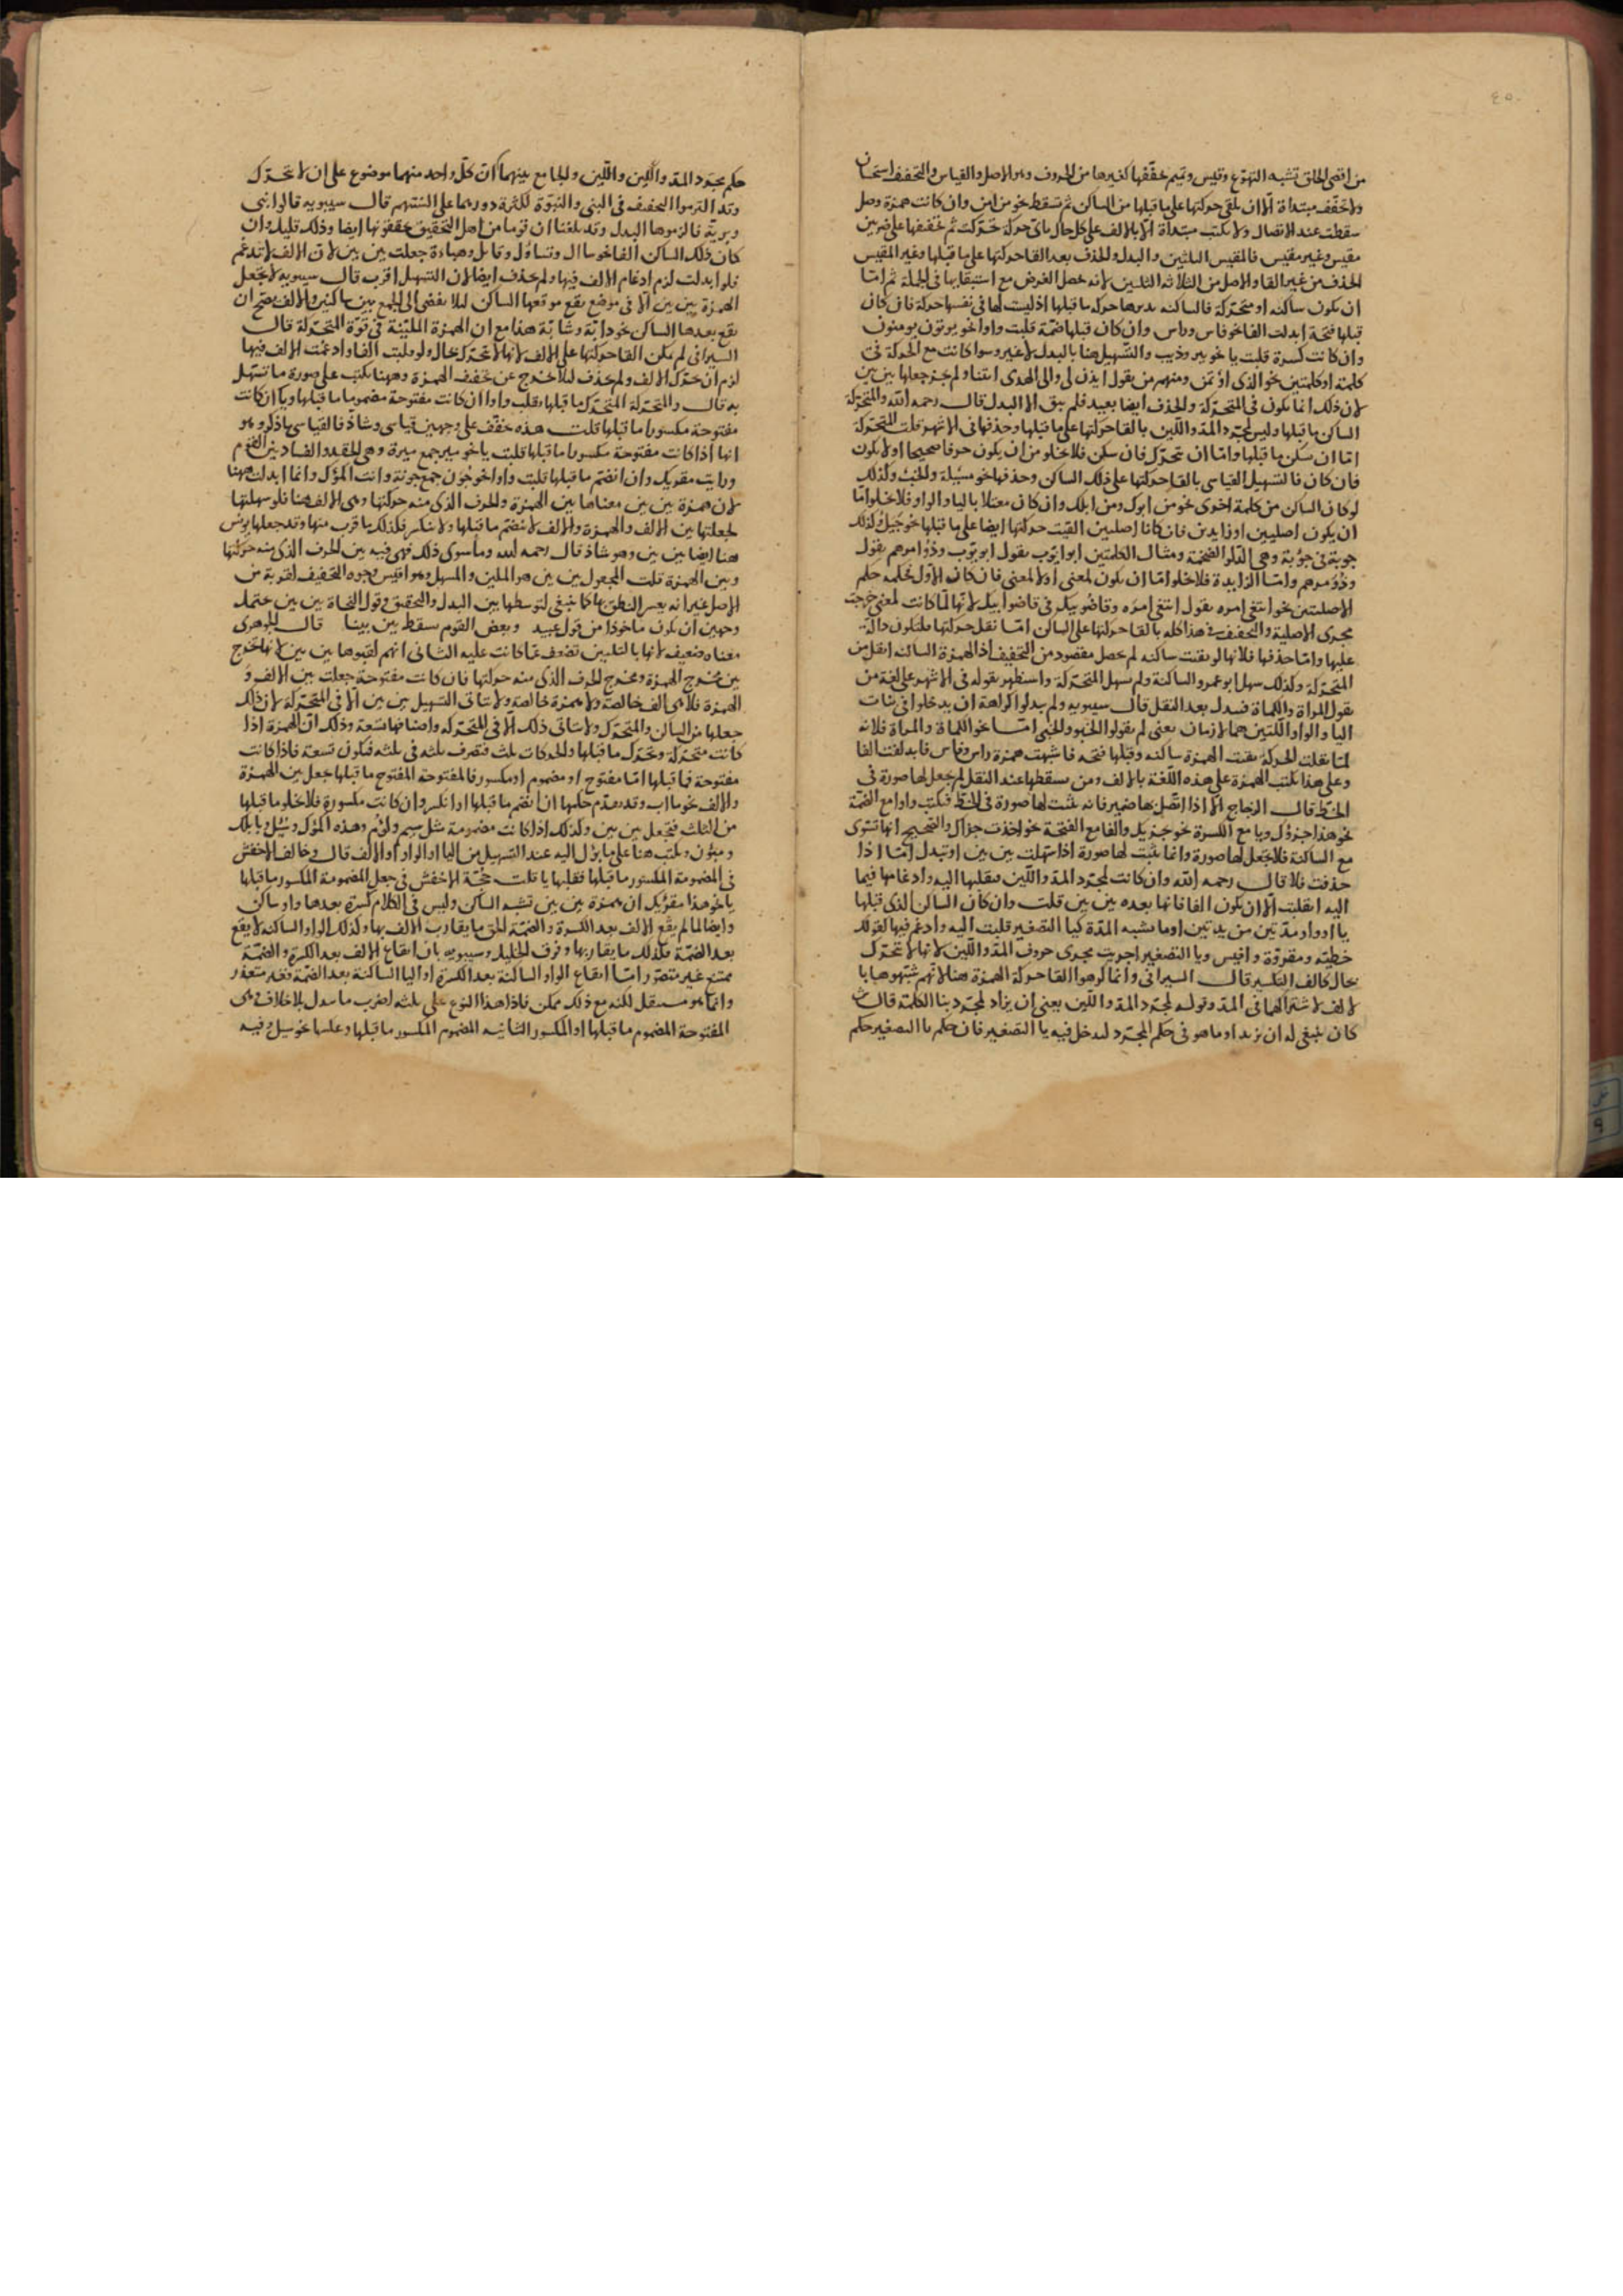 ٤٥٠
من اقصى الحلق تشبه التهوّع وقيس وتميم تخفّفها كغيرها من الحروف وهو الاصل والقياس والتخفيف استحسان
ولا تخفّف مبتداة الا ان يلقى حركتها على ما قبلها من الساكن ثم تسقط نحو من امن وان كانت همزة وصل
سقطت عند الاتصال ولا يكتب مبتداة الا بالالف على كل حال باىّ حركة تحرّكت ثم تخفيفها على ضربين
مقيس وغير مقيس فالمقيس البين بين والبدل والحذف بعد القا حركتها على ما قبلها وغير المقيس
الحذف من غير القا والاصل من الثلاثة البين بين لانه يحصل الغرض مع استبقايها فى الجملة ثم امّا
ان يكون ساكنه او متحرّكة فالساكنه يدبرها حركة ما قبلها اذ ليست لها فى نفسها حركة فان كان
قبلها فتحة ابدلت الفا نحو فاس وراس وان كان قبلها ضمّة قلبت واوا نحو يوتون يومنون
وان كانت كسرة قلبت يا نحو بير وذيب والتسهيل هنا بالبدل لا غير وسوا كانت مع الحركة فى
كلمة او كلمتين نحو الذى اؤتمن ومنهم من يقول ايذن لى والى الهدى ائتنا ولم يجز جعلها بين بين
لان ذلك انما يكون فى المتحرّكة والحذف ايضا بعيد فلم يبق الا البدل قال رحمه الله والمتحرّكة
الساكن ما قبلها وليس لمجرّد المدّ واللّين بالقا حركتها على ما قبلها وحذفها فى الاشهر قلت المتحرّكة
امّا ان سكن ما قبلها وامّا ان تحرّك فان سكن فلا يخلو من ان يكون حرفا صحيحا او لا يكون
فان كان فالتسهيل القياسى بالقا حركتها على ذلك الساكن وحذفها نحو مسَلة والخبُ وكذلك
لو كان الساكن من كلمة اخرى نحو من ابوك ومن ابلك وان كان معتلا باليا والواو فلا يخلو امّا
ان يكون اصليين او زايدين فان كانا اصليين القيت حركتها ايضا على ما قبلها نحو جيل وكذلك
حوبة فى حوءبة وهى الدلو الضخمة ومثال الكلمتين ابو ايّوب يقول ابويّوب وذو امرهم يقول
وذومرهم وامّا الزايدة فلا يخلو امّا ان يكون لمعنى او لا لمعنى فان كان الاوّل فحكمه حكم
الاصليتين نحو ابتغى امره يقول ابتغى مره وقاضو بيك فى قاضوا ابيك لانّها لمّا كانت لمعنى خرجت
مجرى الاصلية والتخفيف فى هذا كله بالقا حركتها على الساكن امّا نقل حركتها فلتكون دالّة
عليها وامّا حذفها فلانها لو بقيت ساكنه لم يحصل مقصود من التخفيف اذ الهمزة الساكنه اثقل من
المتحرّكة وكذلك سهل ابو عمرو الساكنة ولم يسهل المتحرّكة واستظهر بقوله فى الاشهر على لغة من
يقول المراة والكماة فيبدل بعد النقل قال سيبويه ولم يبدلوا كراهة ان يدخلوا فى بنات
اليا والواو اللّتين هما لامان يعنى لم يقولوا الخبو والخبى امّا نحو الكماة والمراة فلانه
لمّا نقلت الحركة بقيت الهمزة ساكنه وقبلها فتحه فاشبهت همزة راس وفاس فابدلت الفا
وعلى هذا يكتب الهمزة على هذه اللّغة بالالف ومن يسقطها عند النقل لم يجعل لها صورة فى
الخطّ قال الزجاج الا اذا اتّصل بها ضمير فانه يثبت لها صورة فى الخطّ فيكتب واوا مع الضمّة
نحو هذا جزؤك ويا مع الكسرة نحو جزيك والفا مع الفتحة نحو اخذت جزاك والصحيح انها تستوى
مع الساكنة فلا يجعل لها صورة وانما يثبت لها صورة اذا سهلت بين بين او تبدل امّا اذا
حذفت فلا قال رحمه الله وان كانت لمجرّد المدّ واللّين فبقلبها اليه وادغامها فيما
اليه انقلبت الا ان يكون الفا فانها بعده بين بين قلت وان كان الساكن الذى قبلها
يا او واو مدّتين مزيدتين او ما يشبه المدّة كيا التصغير قلبت اليه وادغم فيها كقولك
خطيّة ومقروّة وافيس ويا التصغير اجريت مجرى حروف المدّ واللّين لانها لا تحرّك
بحال كالف التكسير قال السيرافى وانما كرهوا القا حركة الهمزة هنا لانّهم شبّهوها با
لالف لاشتراكهما فى المدّ وقوله لمجرّد المدّ واللّين يعنى ان يزاد لمجرّد بنا الكلمة قال ش
كان ينبغى له ان يزيد او ما هو فى حكم المجرّد ليدخل فيه يا التصغير فان حكم يا التصغير حكم
حكم مجرّد المدّ واللّين واللّين والجامع بينهما انّ كلّ واحد منهما موضوع على ان لا تحرّك
وقد التزموا التخفيف فى النبى والنبوّة لكثرة دورهما على السنتهم قال سيبويه قالوا نبى
وبريّة فالزموها البدل وقد بلغنا ان قوما من اهل التحقيق يحقّقونها ايضا وذلك قليل وان
كان ذلك الساكن الفا نحو سال وتساؤل وقايل وهباءة جعلت بين بين لان الالف لا تدغم
فلو ابدلت لزم ادغام الالف فيها ولم يحذف ايضا لان التسهيل اقرب قال سيبويه لا يجعل
الهمزة بين بين الا فى موضع يقع موقعها الساكن ليلا يفضى الى الجمع بين ساكنين والالف يصحّ ان
يقع بعدها الساكن نحو دابّة وشابّة هذا مع ان الهمزة المليّنة فى قوّة المتحرّكة قال
السيرافى لم يمكن القا حركتها على الالف لانها لا تحرّك بحال ولو قلبت الفا وادغمت الالف فيها
لزم ان تحرّك الالف ولم يحذف ليلا يخرج عن تخفيف الهمزة وههنا يكتب على صورة ما تسهّل
به قال والمتحرّكة المتحرّك ما قبلها يقلب واوا ان كانت مفتوحة مضموما ما قبلها ويا ان كانت
مفتوحة مكسورا ما قبلها قلت هذه يخفّف على وجهين قياسى وشاذ فالقياسى ما ذكر وهو
انها اذا كانت مفتوحة مكسورا ما قبلها قلبت يا نحو مير جمع ميرة وهى الحقد والفساد بين القوم
ورايت مقريك وان انضمّ ما قبلها قلبت واوا نحو جُوَن جمع جونة وانت المؤك وانما ابدلت ههنا
لان همزة بين بين معناها بين الهمزة والحرف الذى منه حركتها وهى الالف هنا فلو سهلتها
لجعلتها بين الالف والهمزة والالف لا ينضمّ ما قبلها ولا ينكسر فكذلك ما قرب منها وقد جعلها يونس
هنا ايضا بين بين وهو شاذ قال رحمه الله وما سوى ذلك فهى فيه بين الحرف الذى منه حركتها
وبين الهمزة قلت المجعول بين بين هو الملين والمسهل وهو اقيس وجوه التخفيف لقربه من
الاصل غير انه يعسر النطق بها كما ينبغى لتوسطها بين البدل والتحقيق وقول النحاة بين بين يحتمل
وجهين ان يكون ماخوذا من قول عبيد وبعض القوم يسقط بين بينا قال الجوهرى
معناه ضعيف لانها بالتليين تضعف عمّا كانت عليه الثانى انهم لقبوها بين بين لانها تخرج
بين مخرج الهمزة ومخرج الحرف الذى منه حركتها فان كانت مفتوحة جعلت بين الالف و
الهمزة فلا هى الف خالصة ولا همزة خالصة ولا يتاتى التسهيل بين بين الا فى المتحرّكة لان ذلك
جعلها بين الساكن والمتحرك ولا يتاتى ذلك الا فى المتحرّكة واصنافها تسعة وذلك انّ الهمزة اذا
كانت متحرّكة وتحرّك ما قبلها والحركات ثلث فتضرب ثلثه فى ثلثه فيكون تسعة فاذا كانت
مفتوحة فما قبلها امّا مفتوح او مضموم او مكسور فالمفتوحة المفتوح ما قبلها يجعل بين الهمزة
والالف نحو ساب وقد تقدّم حكمها ان انضم ما قبلها او انكسر وان كانت مكسورة فلا يخلو ما قبلها
من الثلث فتجعل بين بين وكذلك اذا كانت مضمومة مثل سيم ولؤم وهذه المؤك وسُيل وبابلك
ومبؤن ويكتب هنا على ما يؤل اليه عند التسهيل من اليا او الواو او الالف قال وخالف الاخفش
فى المضمومة المكسور ما قبلها فقلبها يا قلت حجّة الاخفش فى جعل المضمومة المكسور ما قبلها
يا نحو هذا مقريك ان همزة بين بين تشبه الساكن وليس فى الكلام كسرة بعدها واو ساكن
وايضا لما لم يقع الالف بعد الكسرة والضمّة الحق ما يقارب الالف بها وكذلك الواو الساكنه لا يقع
بعد الضمّة فكذلك ما يقاربها وفرق الخليل وسيبويه بان ايقاع الالف بعد الكسرة والضمّة
ممتنع غير متصوّر امّا ايقاع الواو الساكنة بعد الكسرة او اليا الساكنة بعد الضمّة فغير متعذر
وانما هو مستثقل لكنه مع ذلك ممكن فاذا هذا النوع على ثلثه اضرب ما يبدل بلا خلاف وهى
المفتوحة المضموم ما قبلها او المكسور الثانيه المضموم المكسور ما قبلها وعكسها نحو سيل وفيه